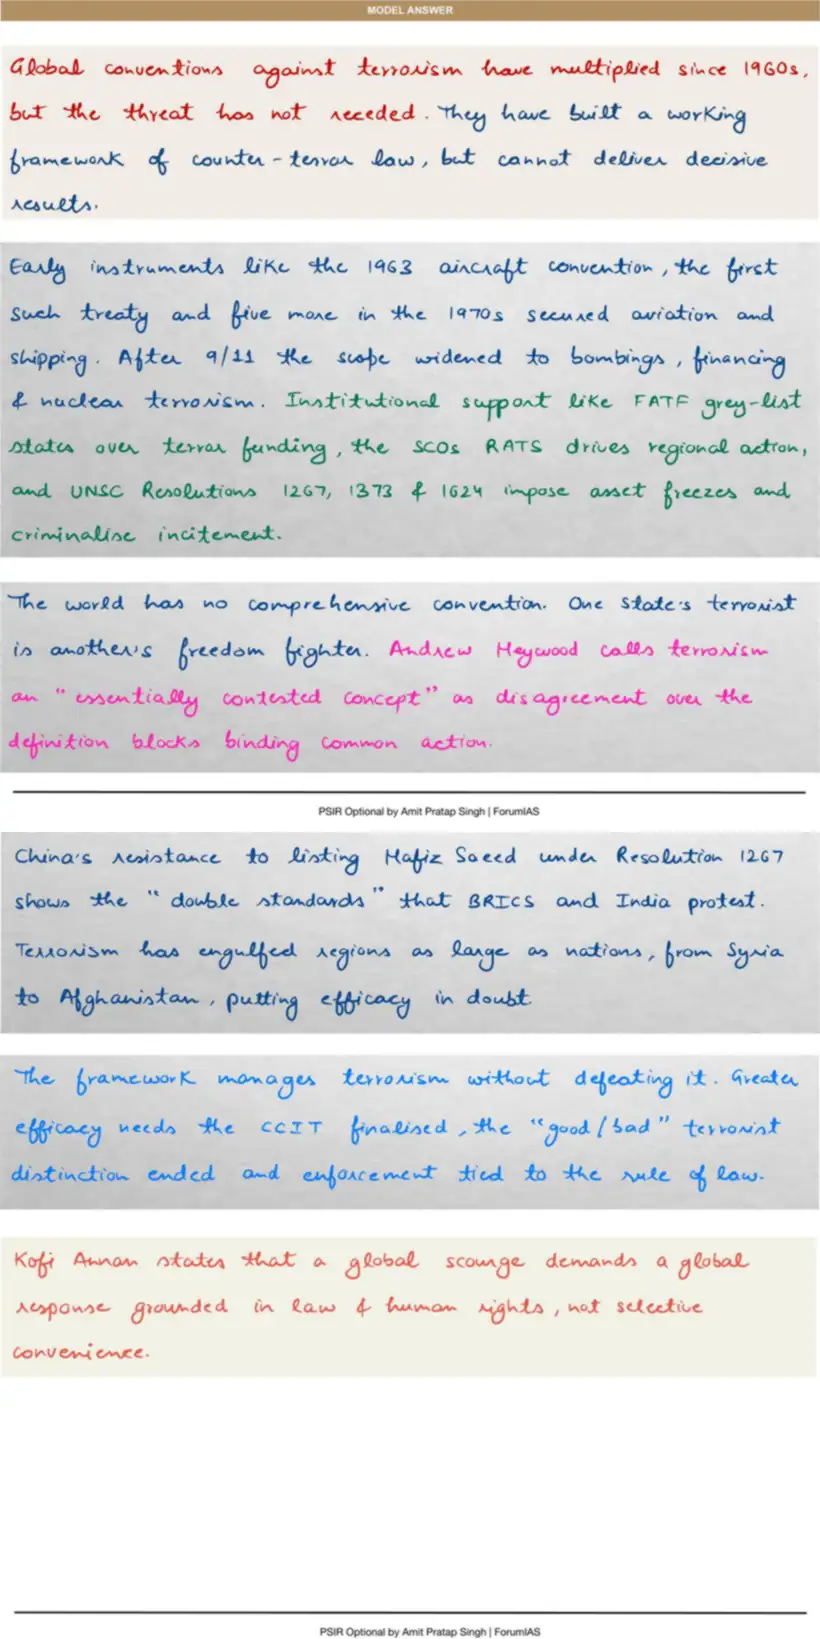 MODEL ANSWER
Global conventions against terrorism have multiplied since 1960s,
but the threat has not receded. They have built a working
framework of counter-terror law, but cannot deliver decisive
results.
Early instruments like the 1963 aircraft convention, the first
such treaty and five more in the 1970s secured aviation and
shipping. After 9/11 the scope widened to bombings, financing
& nuclear terrorism. Institutional support like FATF grey-list
states over terror funding, the SCOs RATS drives regional action,
and UNSC Resolutions 1267, 1373 & 1624 impose asset freezes and
criminalise incitement.
The world has no comprehensive convention. One state's terrorist
is another's freedom fighter. Andrew Heywood calls terrorism
an "essentially contested concept" as disagreement over the
definition blocks binding common action.
PSIR Optional by Amit Pratap Singh | ForumIAS
China's resistance to listing Hafiz Saeed under Resolution 1267
shows the "double standards" that BRICS and India protest.
Terrorism has engulfed regions as large as nations, from Syria
to Afghanistan, putting efficacy in doubt
The framework manages terrorism without defeating it. Greater
efficacy needs the CCIT finalised, the "good/bad" terrorist
distinction ended and enforcement tied to the rule of law.
Kofi Annan states that a global scourge demands a global
response grounded in law & human rights, not selective
convenience.
PSIR Optional by Amit Pratap Singh | ForumIAS